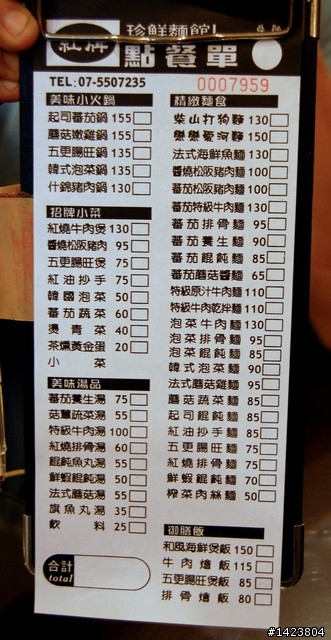 紅牌
珍鮮麵館!
點餐單
TEL:07-5507235
0007959
美味小火鍋
起司番茄鍋 155
蘑菇嫩雞鍋 155
五更腸旺鍋 135
韓式泡菜鍋 135
什錦豬肉鍋 130
招牌小菜
紅燒牛肉煲 130
醬燒松阪豬肉 95
五更腸旺煲 75
紅油抄手 75
韓國泡菜 50
番茄蔬菜 60
燙青菜 40
茶燻黃金蛋 20
小菜
美味湯品
番茄養生湯 75
菇蕈蔬菜湯 55
特級牛肉湯 100
紅燒排骨湯 60
餛飩魚丸湯 55
鮮蝦餛飩湯 50
法式蘑菇湯 55
旗魚丸湯 35
飲料 25
合計
total
精緻麵食
柴山打狗麵 130
戀戀愛河麵 150
法式海鮮魚麵 130
醬燒松阪豬肉麵 100
番茄松阪豬肉麵 100
番茄特級牛肉麵 130
番茄排骨麵 95
番茄養生麵 90
番茄餛飩麵 85
番茄蘑菇醬麵 65
特級原汁牛肉麵 110
特級牛肉乾拌麵 110
泡菜牛肉麵 130
泡菜排骨麵 95
泡菜餛飩麵 85
韓式泡菜麵 90
法式蘑菇雞麵 95
蘑菇蔬菜麵 85
起司餛飩麵 85
紅油抄手麵 85
五更腸旺麵 75
紅燒排骨麵 75
鮮蝦餛飩麵 70
榨菜肉絲麵 50
御膳飯
和風海鮮煲飯 150
牛肉燴飯 115
五更腸旺煲飯 85
排骨燴飯 80
#1423804